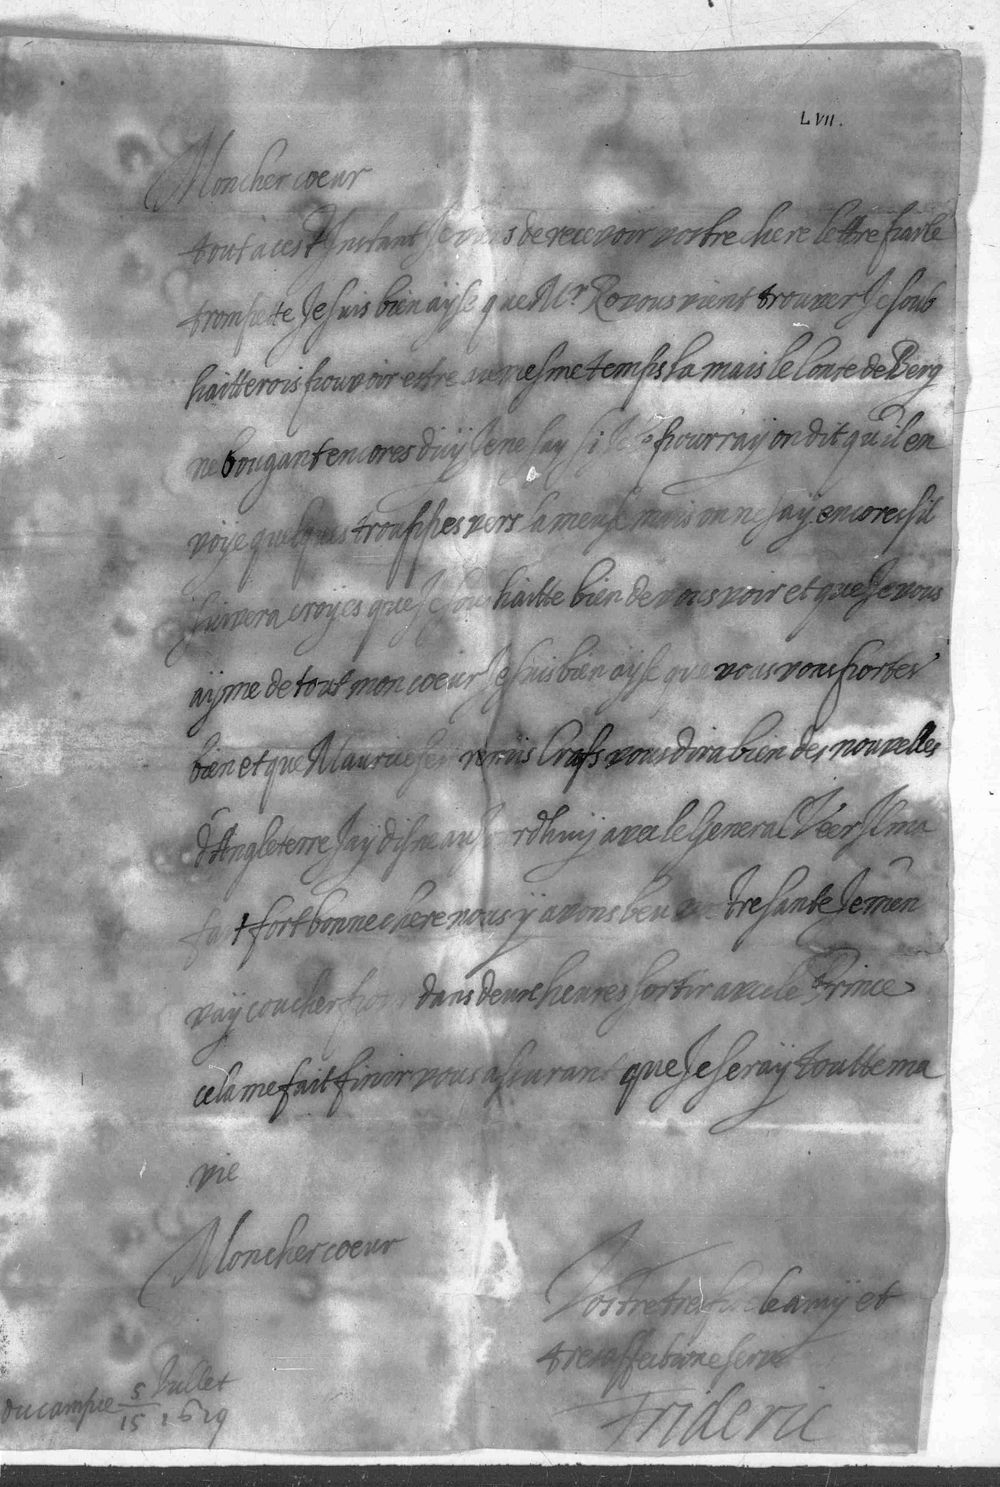 LVII.
Mon cher coeur
tout a cest Instant Je viens de recevoir vostre chere lettre par le
trompette Je suis bien ayse que Mr Ro vous vient trouver Je souh
haitterois pouvoir estre au mesme temps la mais le Conte de Berg
ne bougant encores d'icy Je ne say si Je le pourray on dit qu'il en
voye quelques trouppes vers la meuse mais on ne say encore s'il
suivera croyes que Je souhaitte bien de vous voir et que Je vous
ayme de tout mon coeur Je suis bien ayse que vous vous portes
bien et que Maurice est remis Crafs vous dira bien des nouvelles
d'Angleterre Jay disne aujourdhuy avec le General Veer Il ma
fait fort bonne chere nous y avons beu vostre sante Je m'en
vay coucher pour dans deux heures sortir avec le Prince
cela me fait finir vous assurant que Je seray toutte ma
vie
Mon cher coeur
Vostre tres fidele amy et
tresaffectionne serv
Frideric
Du campe 5/15 Jullet 1629